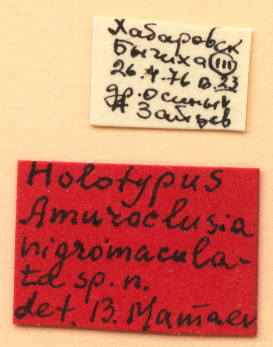 Хабаровск
Бычиха (III)
26.4.76 в. 23
др. осины
Зайцев
Holotypus
Amuroclusia
nigromacula-
ta sp. n.
det. B. Mamaev